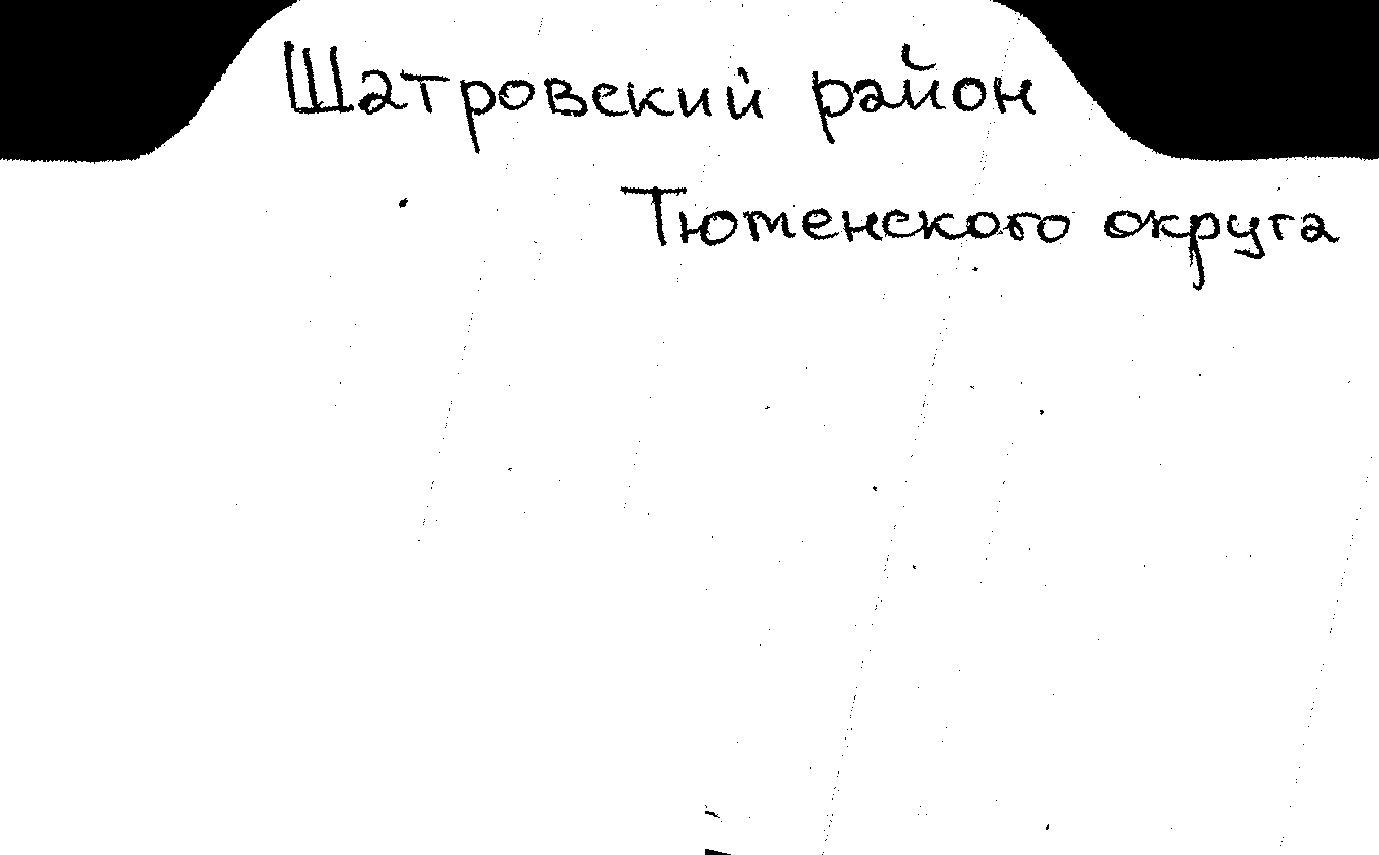 Шатровский район
Тюменского округа